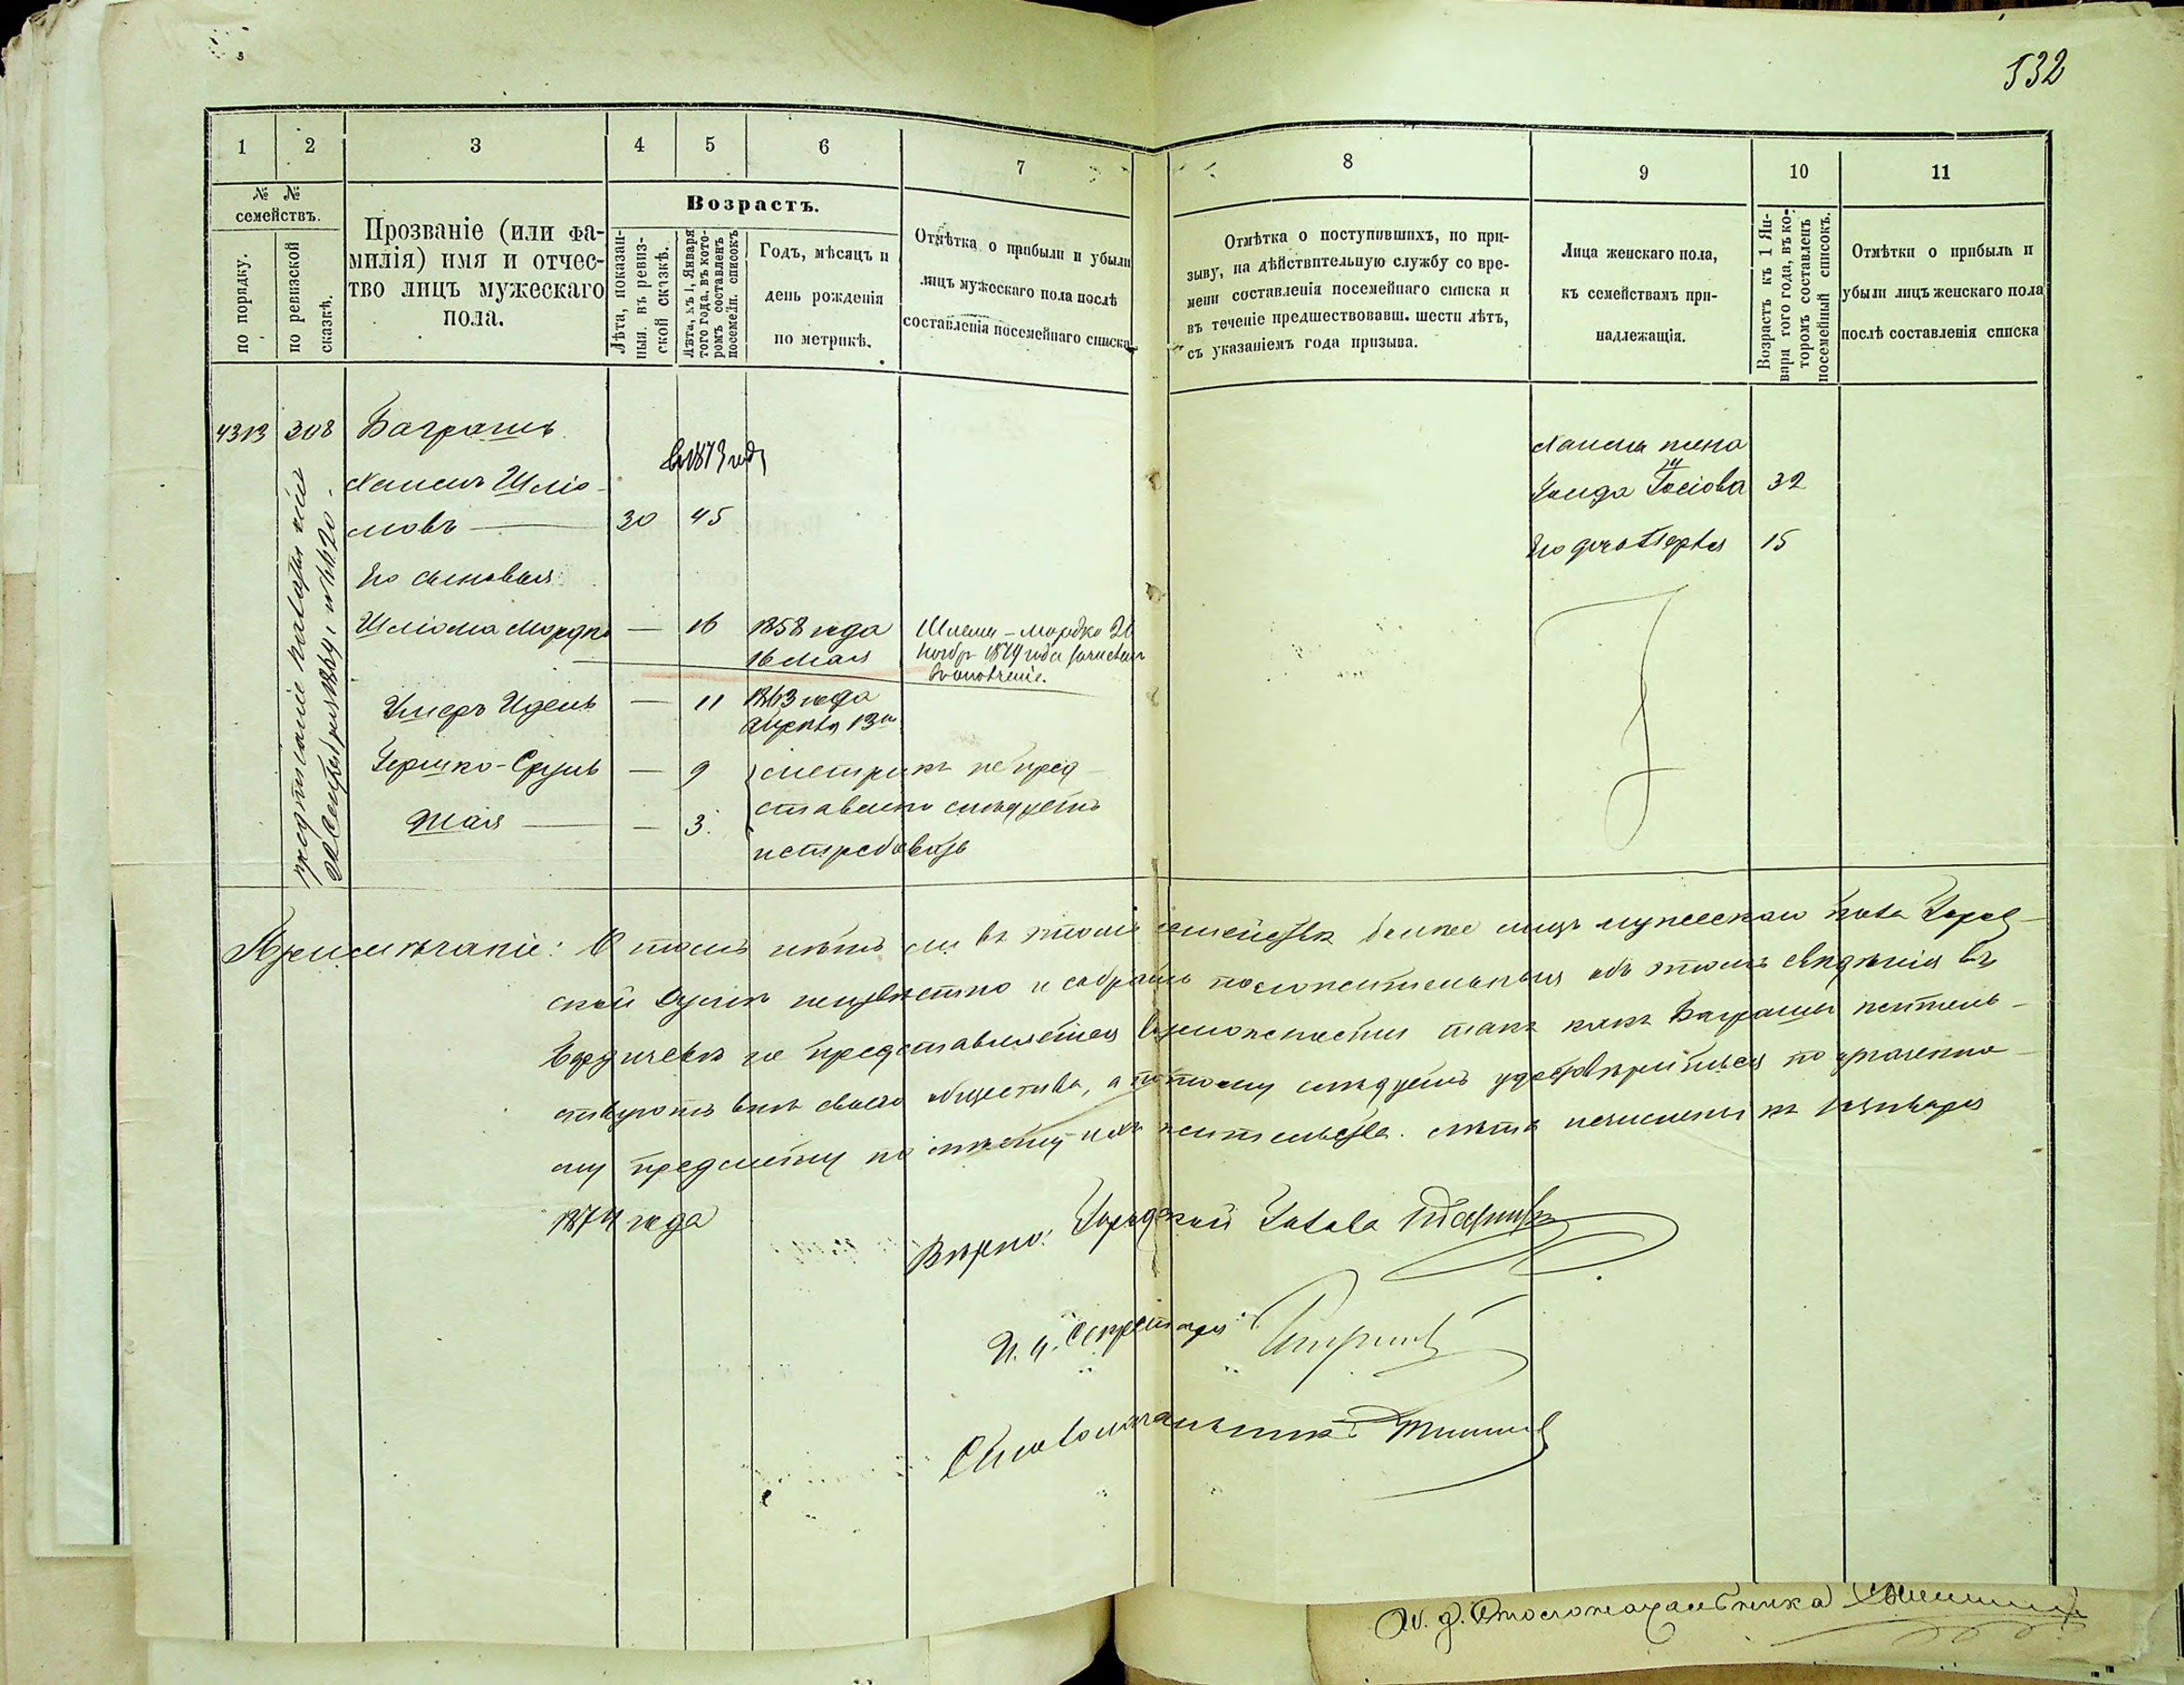 532
1 2 3 4 5 6 7 8 9 10 11
№ №
семействъ.
по порядку.
по ревизской
сказкѣ.
Прозваніе (или фа-
милія) имя и отчес-
тво лицъ мужескаго
пола.
Возрастъ.
Лѣта, показан-
ныя въ ревиз-
ской сказкѣ.
Лѣта, къ 1 Января
того года, въ кото-
ромъ составленъ
посемейн. списокъ
Годъ, мѣсяцъ и
день рожденія
по метрикѣ.
Отмѣтка о прибыли и убыли
лицъ мужескаго пола послѣ
составленія посемейнаго списка
Отмѣтка о поступившихъ, по при-
зыву, на дѣйствительную службу со вре-
мени составленія посемейнаго списка и
въ теченіе предшествовавш. шести лѣтъ,
съ указаніемъ года призыва.
Лица женскаго пола,
къ семействамъ при-
надлежащія.
Возрастъ къ 1 Ян-
варя того года, въ ко-
торомъ составленъ
посемейный списокъ.
Отмѣтки о прибыли и
убыли лицъ женскаго пола
послѣ составленія списка
4313 308 Баграшъ
Шліо-
мовъ — 30 45
1873 году
Его сыновья
Шліома Мордко — 16 1858 года
16 Мая
Шлема-Мордко 21
Ноябр 1879 года
Идель — 11 1863 года
Апрѣля 13го
Гершко-Сруль — 9 метрикъ не пред-
ставлено слѣдуетъ
истребовать
Шая — 3.
жена
32
Его дочь 15
Сентября 1864 г. №
Примѣчаніе: О томъ нѣтъ ли въ этомъ семействѣ болѣе лицъ мужескаго пола Город-
ской Думѣ неизвѣстно и собрать положительныя объ этомъ свѣдѣнія въ
Бердичевѣ не представляется возможности такъ какъ Баграши жительст-
ствуютъ внѣ своего общества, а потому слѣдуетъ удостовѣриться по означенно-
му предмету по мѣсту ихъ жительства. Лѣта исчислены къ 1 Января
1874 года
Вѣрно: Городской Голова
И. д. Секретаря
Столоначальникъ
И. д. Столоначальника